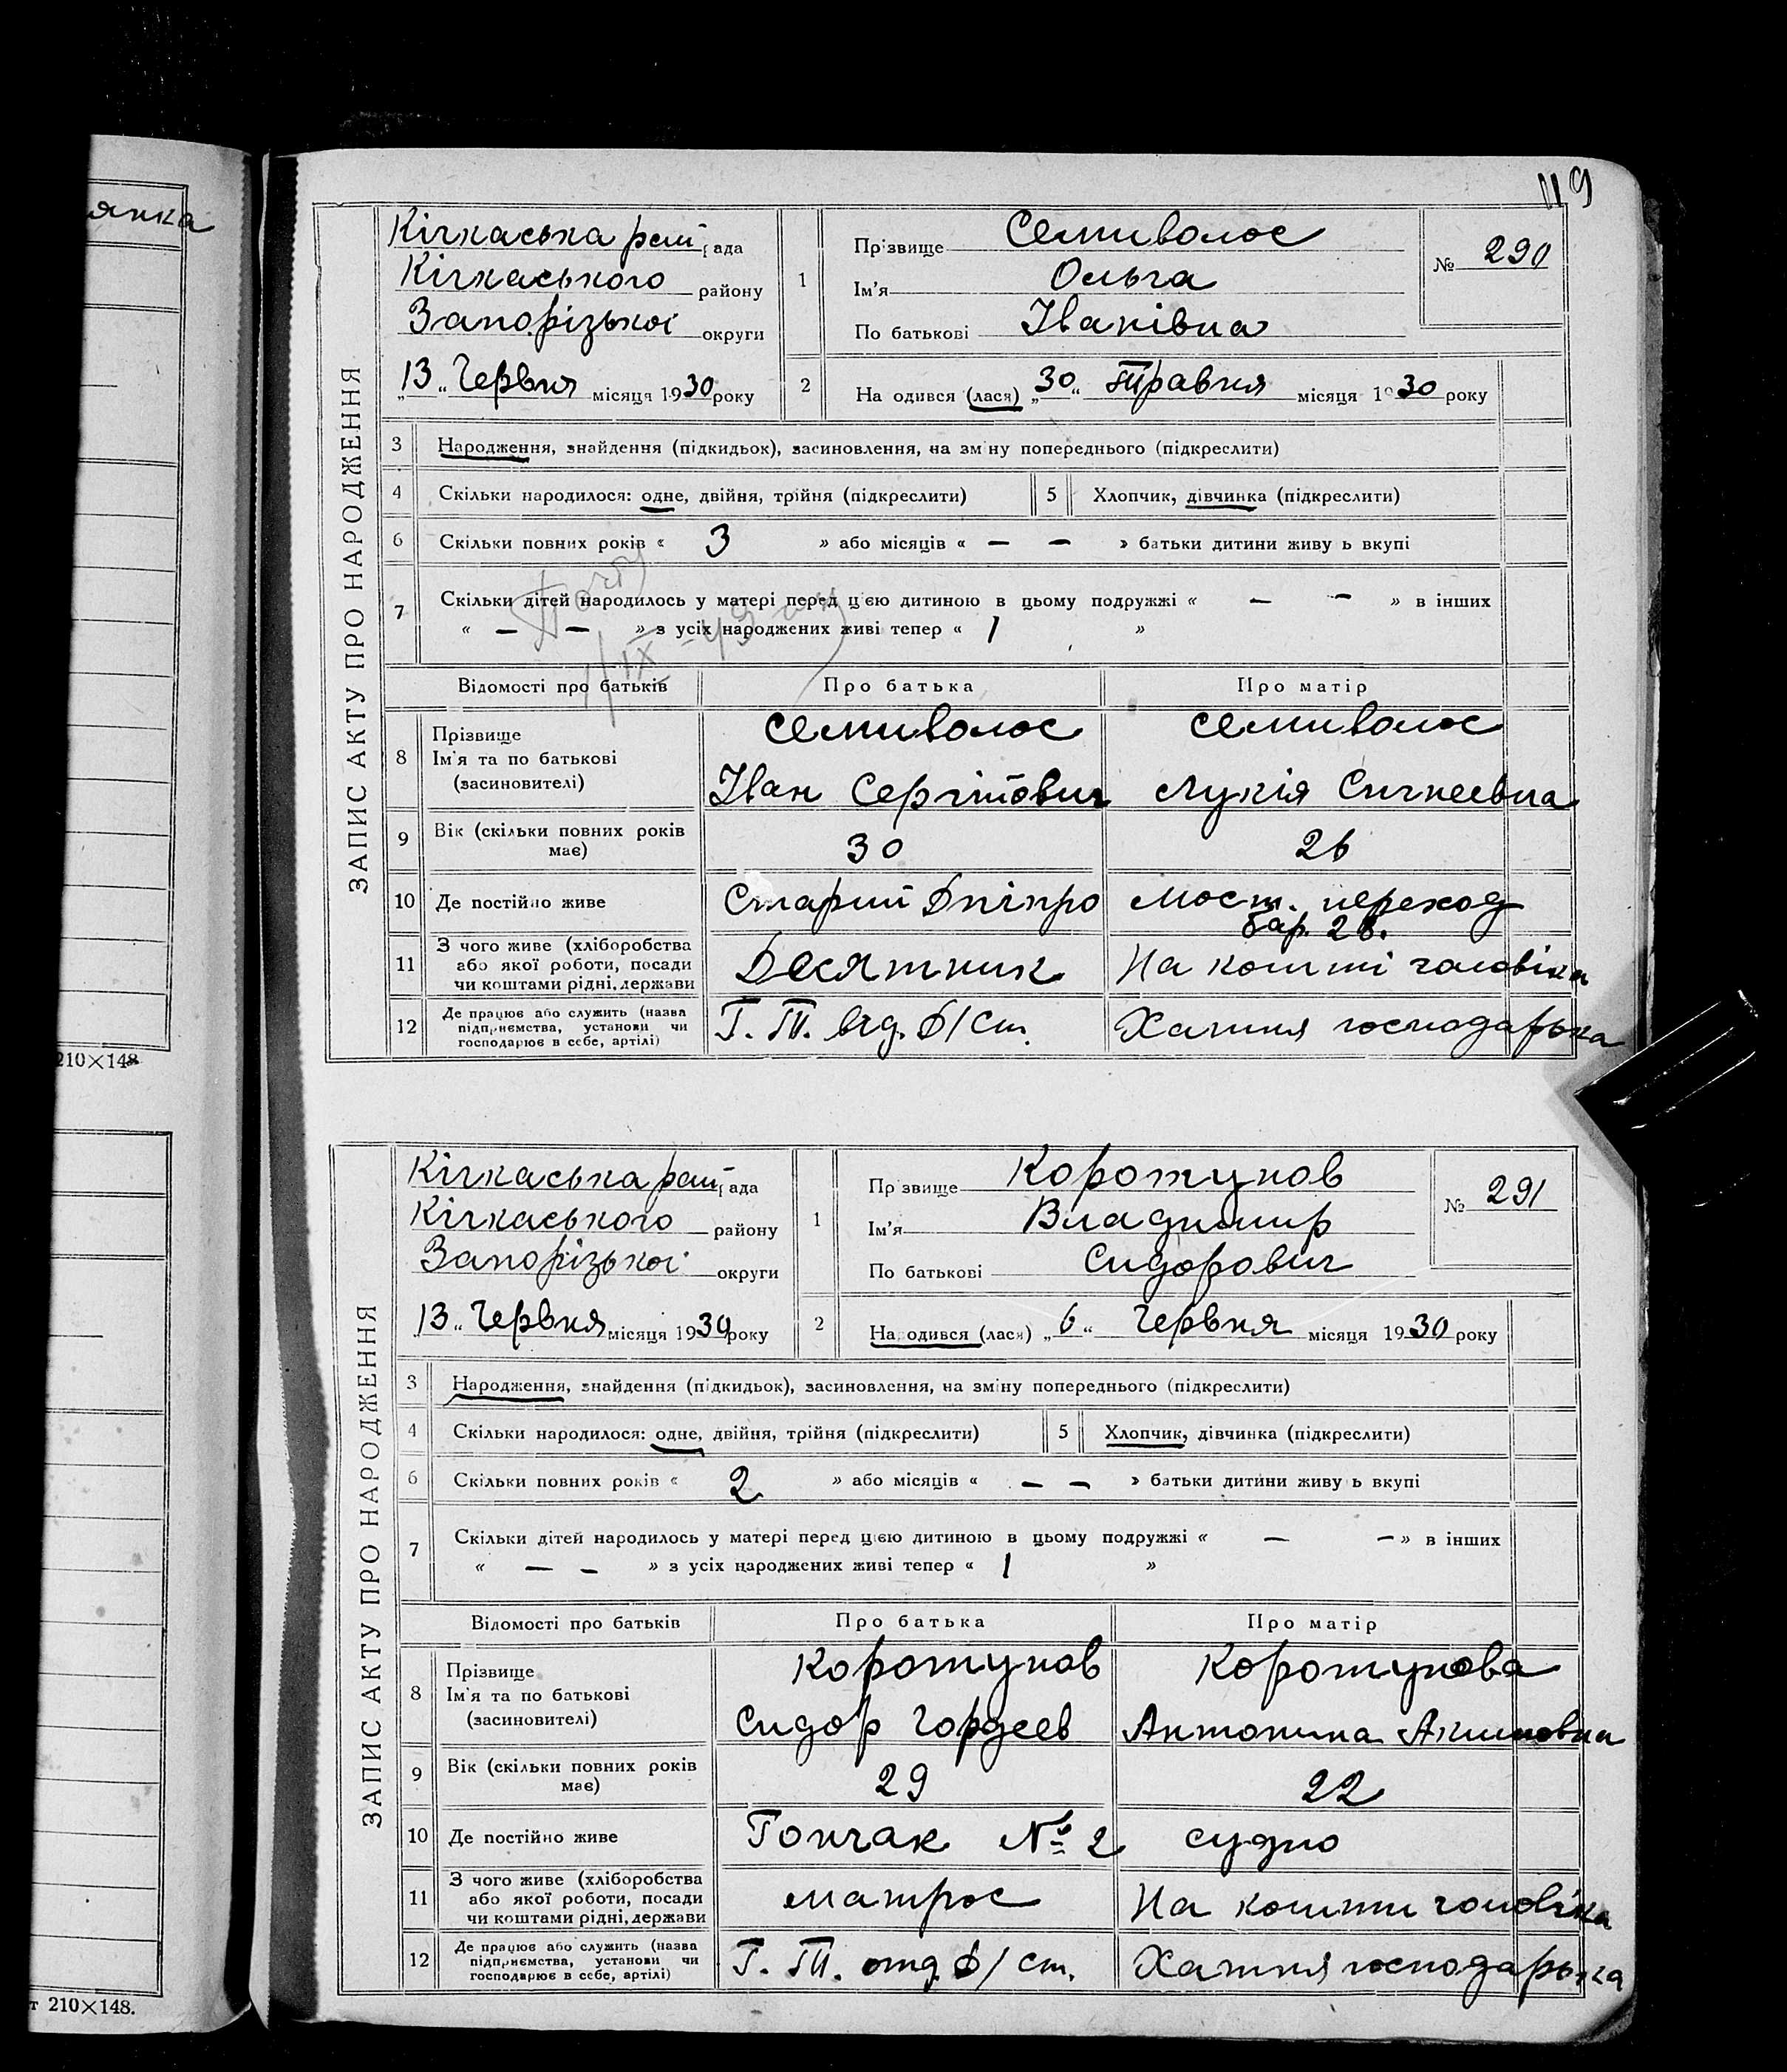 янка
210×148
т 210×148.
119
ЗАПИС АКТУ ПРО НАРОДЖЕННЯ
Кічкаська рай рада
Кічкаського району
Запорізької округи
„13„ Червня місяця 1930 року
1
Прізвище Семиволос
Ім'я Ольга
По батькові Іванівна
№ 290
2
На одився (лася) „30“ Травня місяця 1930 року
3 Народження, знайдення (підкидьок), засиновлення, на зміну попереднього (підкреслити)
4 Скільки народилося: одне, двійня, трійня (підкреслити) 5 Хлопчик, дівчинка (підкреслити)
6 Скільки повних років « 3 » або місяців « — — » батьки дитини живу ь вкупі
7 Скільки дітей народилось у матері перед цією дитиною в цьому подружжі « — — » в інших
« — — » з усіх народжених живі тепер « 1 »
Відомості про батьків Про батька Про матір
8 Прізвище Ім'я та по батькові (засиновителі)
Семиволос Семиволос
Іван Сергійович Лукія
9 Вік (скільки повних років має) 30 26
10 Де постійно живе Старий Дніпро Мост. переход
бар. 28.
11 З чого живе (хліборобства або якої роботи, посади чи коштами рідні, держави Десятник На кошті чоловіка
12 Де працює або служить (назва підприємства, установи чи господарює в себе, артілі) Г. Т. від. Д/ст. Хатня господарька
ЗАПИС АКТУ ПРО НАРОДЖЕННЯ
Кічкаська рай рада
Кічкаського району
Запорізької округи
13„ Червня місяця 1930 року
1
Пр звище Коротунов
Ім'я Владимир
По батькові Сидорович
№ 291
2
Народився (лася) „6“ Червня місяця 1930 року
3 Народження, знайдення (підкидьок), засиновлення, на зміну попереднього (підкреслити)
4 Скільки народилося: одне, двійня, трійня (підкреслити) 5 Хлопчик, дівчинка (підкреслити)
6 Скільки повних років « 2 » або місяців « — — » батьки дитини живу ь вкупі
7 Скільки дітей народилось у матері перед цією дитиною в цьому подружжі « — — » в інших
« — — » з усіх народжених живі тепер « 1 »
Відомості про батьків Про батька Про матір
8 Прізвище Ім'я та по батькові (засиновителі)
Коротунов Коротунова
Сидор Гордеев Антонина Акимовна
9 Вік (скільки повних років має) 29 22
10 Де постійно живе Гончак № 2 судно
11 З чого живе (хліборобства або якої роботи, посади чи коштами рідні, держави матрос На кошти чоловіка
12 Де працює або служить (назва підприємства, установи чи господарює в себе, артілі) Г. Т. отд. Д/ст. Хатня господарька